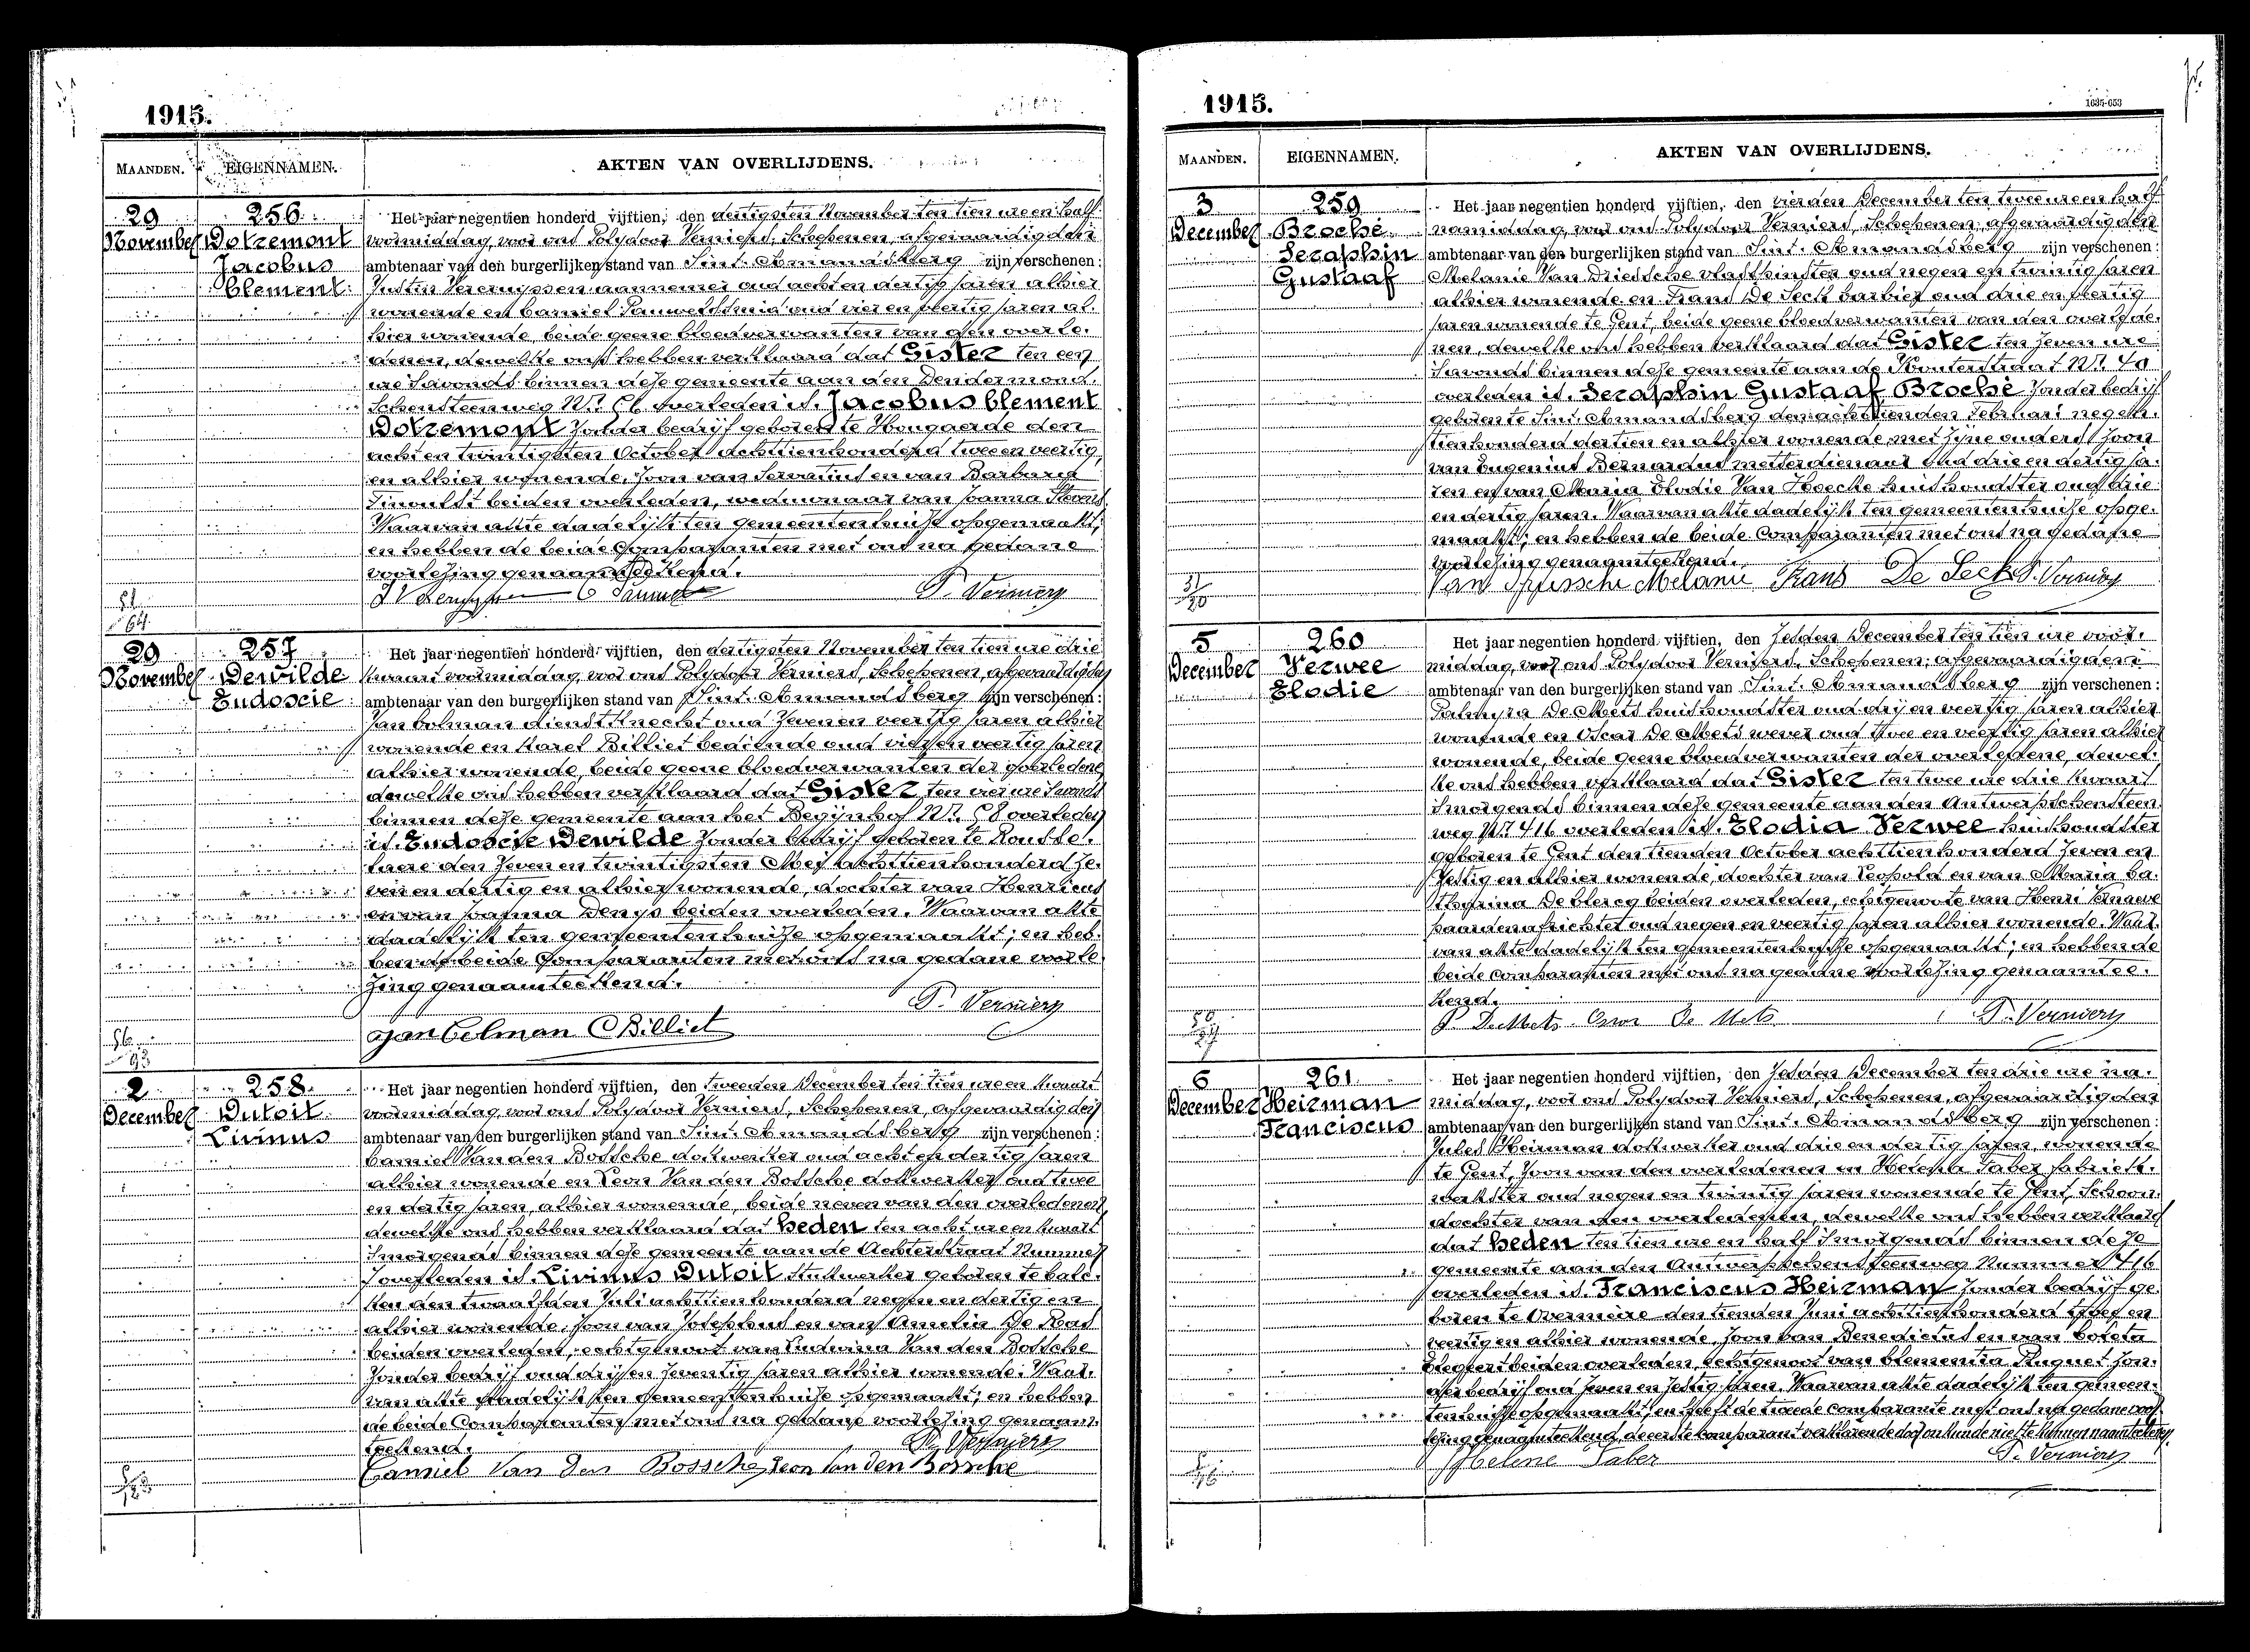 1915.
MAANDEN. EIGENNAMEN. AKTEN VAN OVERLIJDENS.
29 November
256
Dotremont
Jacobus
Clement
Het jaar negentien honderd vijftien, den dertigsten November ten tien ure en half
voormiddag, voor ons Polydoor Verniers, Schepenen, afgevaardigden
ambtenaar van den burgerlijken stand van Sint-Amandsberg zijn verschenen:
Justin aannemer oud acht en dertig jaren alhier
wonende en Camiel Pauwels smid oud vier en veertig jaren al-
hier wonende, beide geene bloedverwanten van den overle-
denen, dewelke ons hebben verklaard dat Gister ten een
ure 's avonds binnen deze gemeente aan den Dendermond-
schensteenweg Nr overleden is Jacobus Clement
Dotremont zonder bedrijf geboren te Hougaerde den
acht en twintigsten October achttienhonderd twee en veertig,
en alhier wonende, zoon van Servatius en van Barbara
beiden overleden, weduwnaar van Joanna
Waarvan akte dadelijk ten gemeentenhuize opgemaakt;
en hebben de beide Comparanten met ons na gedane
voorlezing genaamteekend.
P. Verniers
29 November
257
Dewilde
Eudoscie
Het jaar negentien honderd vijftien, den dertigsten November ten tien ure drie
kwaart voormiddag, voor ons Polydoor Verniers, Schepenen, afgevaardigden
ambtenaar van den burgerlijken stand van Sint-Amandsberg zijn verschenen:
Jan Colman dienstknecht oud zeven en veertig jaren alhier
wonende en Karel Billiet bediende oud vier en veertig jaren
alhier wonende, beide geene bloedverwanten der overledene
dewelke ons hebben verklaard dat Gister ten vier ure 's avonds
binnen deze gemeente aan het Begijnhof Nr 58 overleden
is Eudoscie Dewilde zonder bedrijf geboren te Rousse-
laere den zeven en twintigsten Mei achttienhonderd ze-
ven en dertig en alhier wonende, dochter van Henricus
en van Joanna Denys beiden overleden. Waarvan akte
dadelijk ten gemeentenhuize opgemaakt; en heb-
ben de beide Comparanten met ons na gedane voorle-
zing genaamteekend.
P. Verniers
Jan Colman C Billiet
2 December
258
Dutoit
Livinus
Het jaar negentien honderd vijftien, den tweeden December ten tien ure en kwart
voormiddag, voor ons Polydoor Verniers, Schepenen, afgevaardigden
ambtenaar van den burgerlijken stand van Sint-Amandsberg zijn verschenen:
Camiel Van den Bossche dokwerker oud acht en dertig jaren
alhier wonende en Leon Van den Bossche dokwerker oud twee
en dertig jaren, alhier wonende, beide neven van den overledenen
dewelke ons hebben verklaard dat heden ten acht ure en kwart
's morgends binnen deze gemeente aan de Achterstraat Nummer
7 overleden is Livinus Dutoit stukwerker geboren te Calc-
ken den twaalfden Juli achttienhonderd negen en dertig en
alhier wonende, zoon van Josephus en van Amelia De Ras
beiden overleden, echtgenoot van Ludovica Van den Bossche
zonder bedrijf oud drij en zeventig jaren alhier wonende. Waar-
van akte dadelijk ten gemeentenhuize opgemaakt; en hebben
de beide Comparanten met ons na gedane voorlezing genaam-
teekend.
P. Verniers
Camiel Van Den Bossche Leon Van den Bossche
1915.
1635-653
MAANDEN. EIGENNAMEN. AKTEN VAN OVERLIJDENS.
3 December
259
Broché
Seraphin
Gustaaf
Het jaar negentien honderd vijftien, den vierden December ten twee ure en half
namiddag, voor ons Polydoor Verniers, Schepenen, afgevaardigden
ambtenaar van den burgerlijken stand van Sint-Amandsberg zijn verschenen:
Melanie Van Driessche vlasspinster oud negen en twintig jaren
alhier wonende en Frans De Seck barbier oud drie en veertig
jaren wonende te Gent, beide geene bloedverwanten van den overlede-
nen, dewelke ons hebben verklaard dat Gister ten zeven ure
's avonds binnen deze gemeente aan de Kouterstraat Nr 40
overleden is Seraphin Gustaaf Broché zonder bedrijf
geboren te Sint-Amandsberg den achttienden Februari negen-
tienhonderd dertien en alhier wonende met zijne ouders, zoon
van Eugenius Bernardus metserdienaar oud drie en dertig ja-
ren en van Maria Elodie Van Hoecke huishoudster oud drie
en dertig jaren. Waarvan akte dadelijk ten gemeentenhuize opge-
maakt; en hebben de beide Comparanten met ons na gedane
voorlezing genaamteekend.
Van Driessche Melanie Frans De Seck P. Verniers
5 December
260
Verwee
Elodie
Het jaar negentien honderd vijftien, den zesden December ten tien ure voor-
middag, voor ons Polydoor Verniers, Schepenen, afgevaardigden
ambtenaar van den burgerlijken stand van Sint-Amandsberg zijn verschenen:
Palmyra De Mets huishoudster oud drij en veertig jaren alhier
wonende en Oscar De Mets wever oud twee en veertig jaren alhier
wonende, beide geene bloedverwanten der overledene, dewel-
ke ons hebben verklaard dat Gister ten twee ure drie kwart
's morgends binnen deze gemeente aan den Antwerpschensteen-
weg Nr 416 overleden is Elodia Verwee huishoudster
geboren te Gent den tienden October achttienhonderd zeven en
zestig en alhier wonende, dochter van Leopold en van Maria Ca-
tharina De Clercq beiden overleden, echtgenote van Henri
paardenafrichter oud negen en veertig jaren alhier wonende. Waar-
van akte dadelijk ten gemeentenhuize opgemaakt; en hebben de
beide comparanten met ons na gedane voorlezing genaamtee-
kend.
P. De Mets Oscar De Mets P. Verniers
6 December
261
Heirman
Franciscus
Het jaar negentien honderd vijftien, den zesden December ten drie ure na-
middag, voor ons Polydoor Verniers, Schepenen, afgevaardigden
ambtenaar van den burgerlijken stand van Sint-Amandsberg zijn verschenen:
Jules Heirman dokwerker oud drie en dertig jaren, wonende
te Gent, zoon van den overledenen en Helena Faber fabriek-
werkster oud negen en twintig jaren wonende te Gent, Schoon-
dochter van den overledenen, dewelke ons hebben verklaard
dat heden ten tien ure en half 's morgends binnen deze
gemeente aan den Antwerpschensteenweg Nummer 416
overleden is Franciscus Heirman zonder bedrijf ge-
boren te Overmeire den tienden Juni achttienhonderd en
veertig en alhier wonende, zoon van Benedictus en van Coleta
beiden overleden, echtgenoot van Clementia Ruquet zon-
der bedrijf oud zeven en zestig jaren. Waarvan akte dadelijk ten gemeen-
tenhuize opgemaakt; en heeft de tweede comparante met ons na gedane voor-
lezing genaamteekend, de eerste comparant verklarende door onkunde niet te kunnen naamteekenen.
Helene Faber P. Verniers